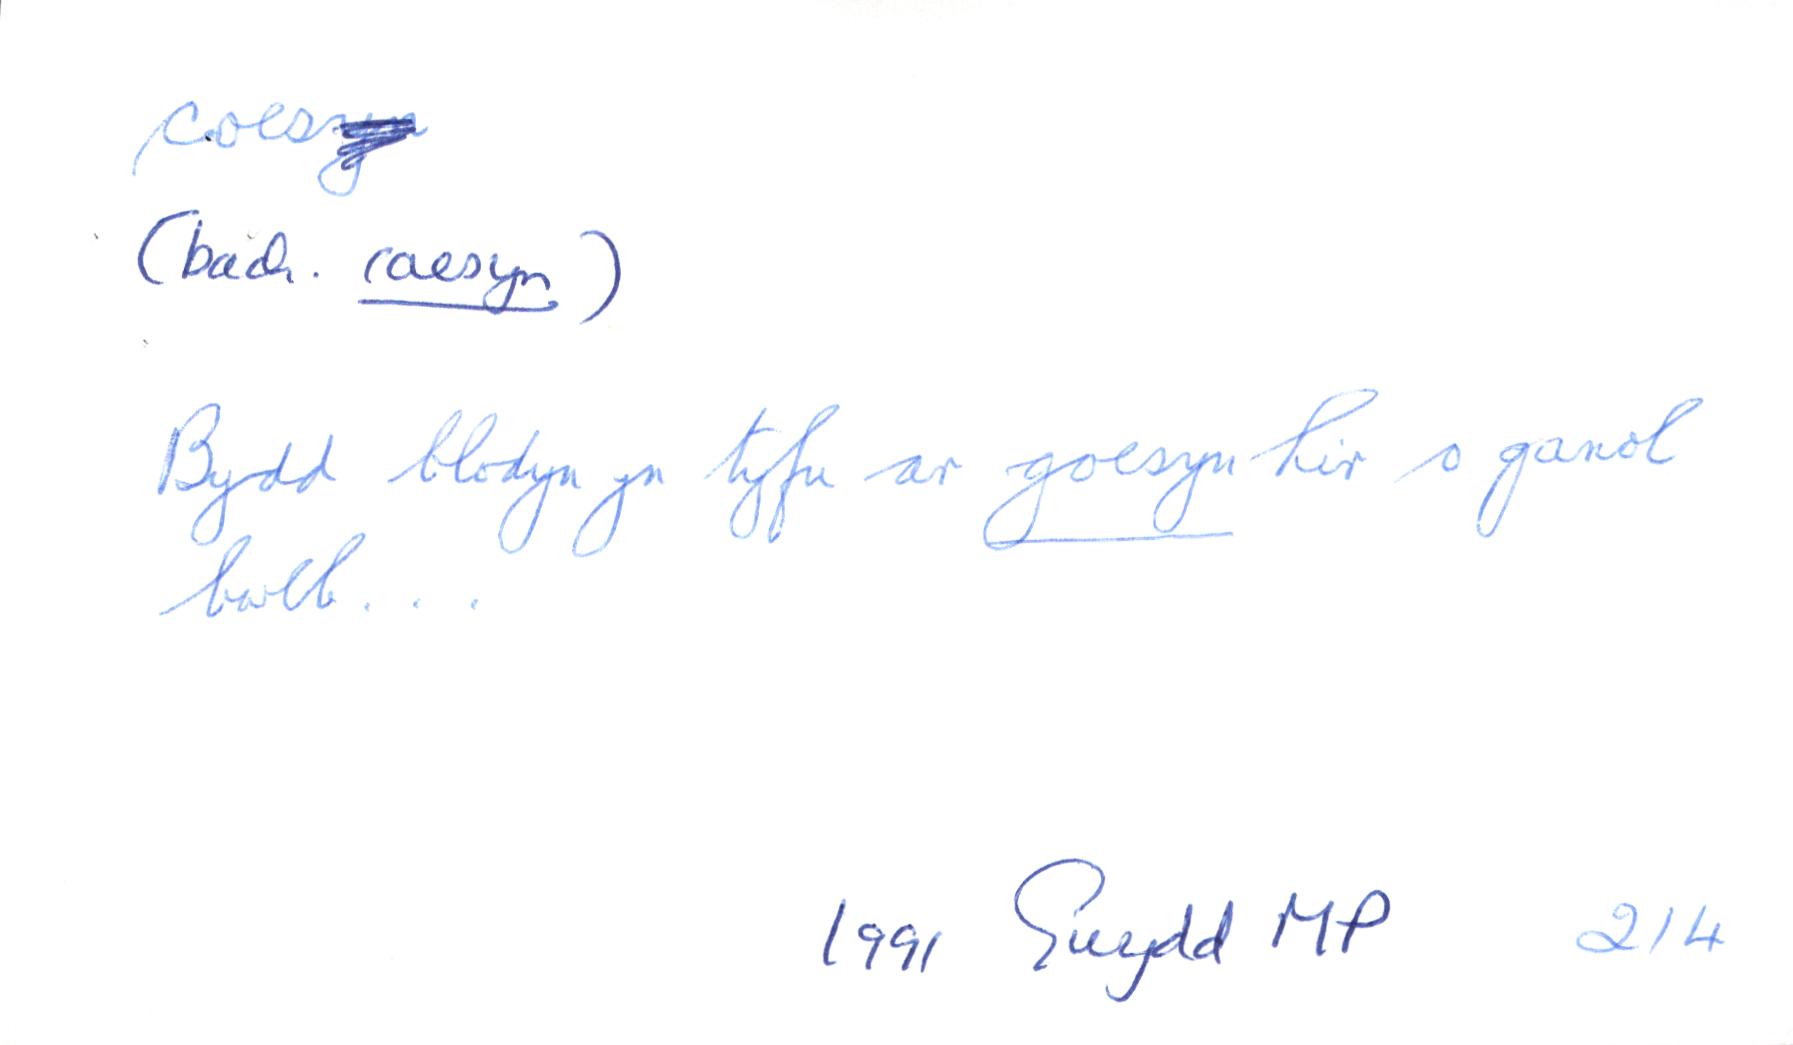 coes
(bach. coesyn)
Bydd blodyn yn tyfu ar goesyn hir o ganol
bwlb...
1991 Gwydd MP 214